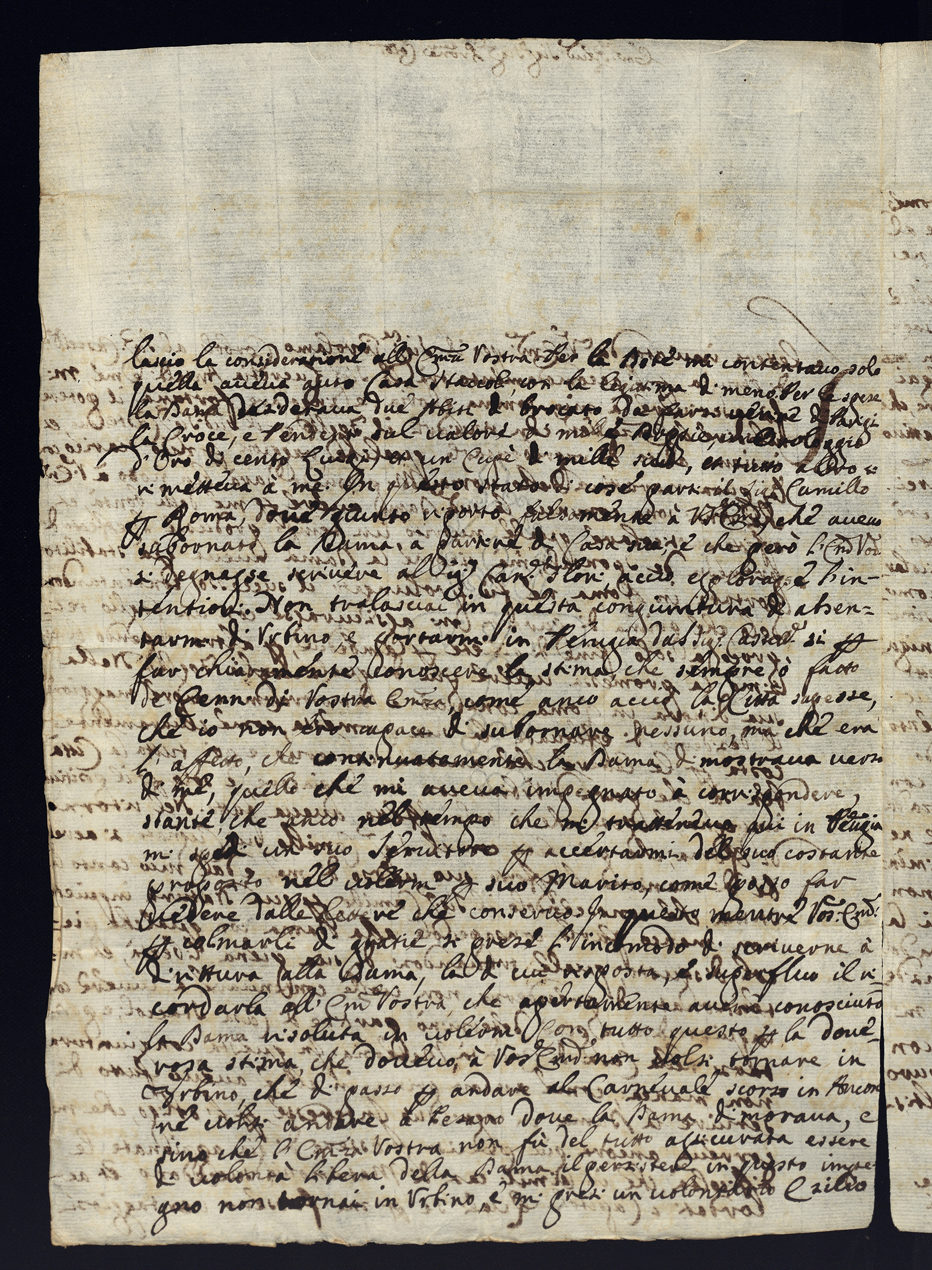 lascio la consideratione all'Em.za Vostra. Per la Dote mi contentavo solo
quella aveva avuto Casa Staccoli con la legitima di meno. Per le spese
la Dama desiderava due Abiti di brocato da farsi venire di Parigi
la Croce, e Pendenti sul valore di mille
d'Oro di cento et un Cupè di mille scudi, et tutto altro si
rimetteva à me. In questo stato di cose partì il Sig.r Camillo
p Roma, dove giunto riportò à che avevo
subornato la Dama, à partire di Casa sua, e che però l'Em.a Vos.
si degnasse scrivere al Sig.r Can. acciò esplorasse l'in-
tentioni. Non tralasciai in questa congiuntura di absen-
tarmi di Urbino e portarmi in Perugia dal Sig. sì p
far chiaramente conoscere la stima, che sempre ò fatto
de Cenni di Vostra Em.za, come anco acciò la Città sapesse,
che io non ero capace di subornare nessuno, ma che era
l'affetto, che continuatamente la Dama dimostrava verso
di me, quello che mi aveva impegnato à corrispondere,
stante, che anco nel tempo che mi trattenevo qui in Perugia
mi spedì un suo Servitore p accertarmi del suo costante
proposito nel volermi p suo Marito, come posso far
vedere dalle lettere che conservo. In questo mentre Vos. Em.
p colmarli di gratie si prese l'incomodo di scriverne à
drittura alla Dama, la di cui risposta, è superfluo il ri-
cordarla all'Em. Vostra, che apertamente averà conosciuto
la Dama risoluta in volermi. Con tutto questo p la dove-
rosa stima, che dovevo, à Vos. Em. non volsi tornare in
Urbino, che di passo p andare al Carnevale scorso in Ancona
nè volsi andare à Pesaro dove la Dama dimorava, e
sino che l'Em.za Vostra non fù del tutto assicurata essere
di volontà libera della Dama il persistere in questo impe-
gno non tornai in Urbino, e mi presi un volontario Esilio